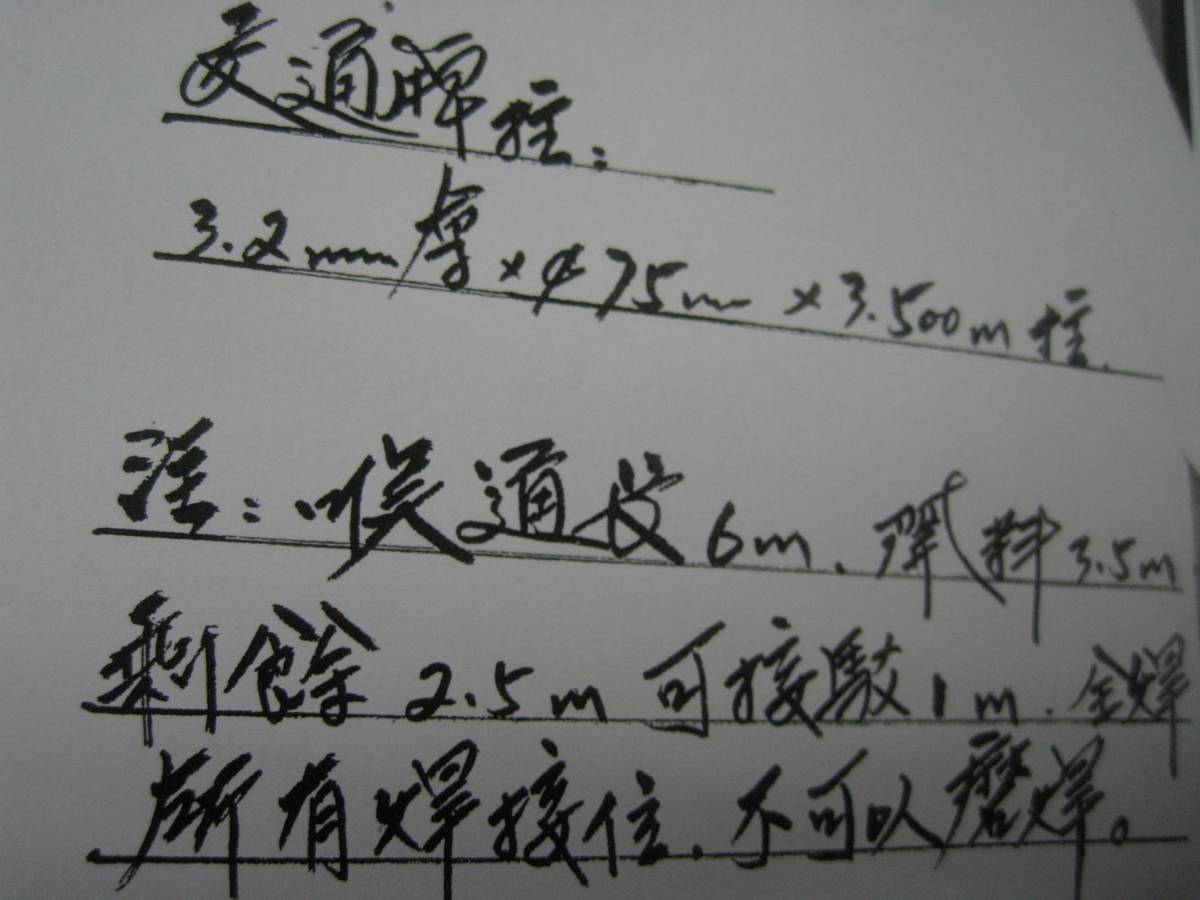 交通牌柱：
3.2mm厚×φ75mm×3.500m柱.
注：喉通長6m.開料3.5m
剩餘2.5m可接駁1m.全焊
所有焊接位.不可以磨焊。